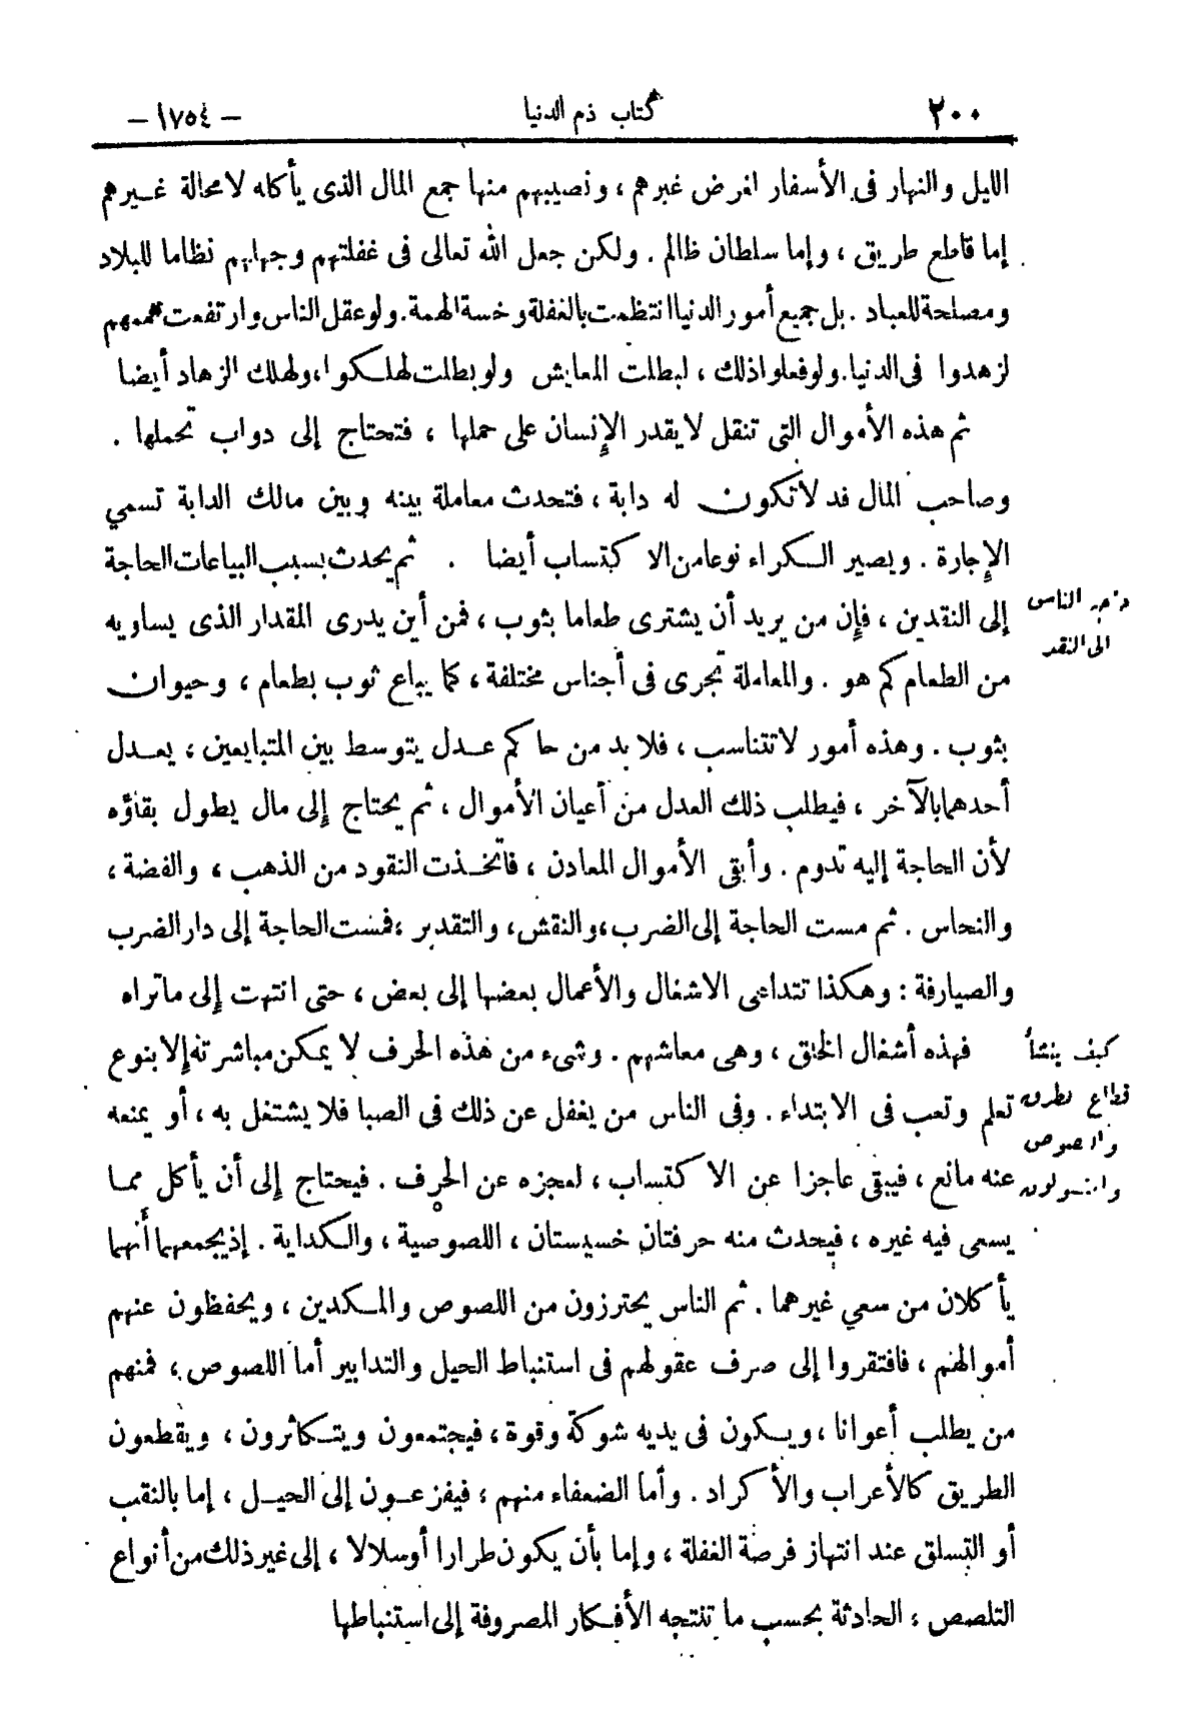 ٢٠٠ كتاب ذم الدنيا - ١٧٥٤ -
الليل والنهار فى الأسفار لغرض غيرهم ، ونصيبهم منها جمع المال الذى يأكله لا محالة غيرهم
إما قاطع طريق ، وإما سلطان ظالم . ولكن جعل الله تعالى فى غفلتهم وجهلهم نظاما للبلاد
ومصلحة للعباد . بل جميع أمور الدنيا انتظمت بالغفلة وخسة الهمة . ولو عقل الناس وارتفعت هممهم
لزهدوا فى الدنيا . ولو فعلوا ذلك ، لبطلت المعايش ولو بطلت لهلكوا ، ولهلك الزهاد أيضا
ثم هذه الأموال التى تنقل لا يقدر الإنسان على حملها ، فتحتاج إلى دواب تحملها .
وصاحب المال قد لا تكون له دابة ، فتحدث معاملة بينه وبين مالك الدابة تسمي
الإجارة . ويصير الكراء نوعا من الاكتساب أيضا . ثم يحدث بسبب البياعات الحاجة
إلى النقدين ، فإن من يريد أن يشترى طعاما بثوب ، فمن أين يدرى المقدار الذى يساويه
الناس
الى النقد
من الطعام كم هو . والمعاملة تجرى فى أجناس مختلفة ، كما يباع ثوب بطعام ، وحيوان
بثوب . وهذه أمور لا تتناسب ، فلا بد من حاكم عدل يتوسط بين المتبايعين ، يعدل
أحدهما بالآخر ، فيطلب ذلك العدل من أعيان الأموال ، ثم يحتاج إلى مال يطول بقاؤه
لأن الحاجة إليه تدوم . وأبقى الأموال المعادن ، فاتخذت النقود من الذهب ، والفضة ،
والنحاس . ثم مست الحاجة إلى الضرب ، والنقش ، والتقدير ، فمست الحاجة إلى دار الضرب
والصيارفة : وهكذا تتداعى الاشغال والأعمال بعضها إلى بعض ، حتى انتهت إلى ماتراه
فهذه أشغال الخلق ، وهى معاشهم . وشىء من هذه الحرف لا يمكن مباشرته إلا بنوع
كيف ينشأ
قطاع الطرق
واللصوص
والمتسولون
تعلم وتعب فى الابتداء . وفى الناس من يغفل عن ذلك فى الصبا فلا يشتغل به ، أو يمنعه
عنه مانع ، فيبقى عاجزا عن الاكتساب ، لعجزه عن الحرف . فيحتاج إلى أن يأكل مما
يسعى فيه غيره ، فيحدث منه حرفتان خسيستان ، اللصوصية ، والكداية . إذ يجمعهما أنهما
يأكلان من سعي غيرهما . ثم الناس يحترزون من اللصوص والمكدين ، ويحفظون عنهم
أموالهم ، فافتقروا إلى صرف عقولهم فى استنباط الحيل والتدابير أما اللصوص ، فمنهم
من يطلب أعوانا ، ويكون فى يديه شوكة وقوة ، فيجتمعون ويتكاثرون ، ويقطعون
الطريق كالأعراب والأكراد . وأما الضعفاء منهم ، فيفزعون إلى الحيل ، إما بالنقب
أو التسلق عند انتهاز فرصة الغفلة ، وإما بأن يكون طرارا أو سلالا ، إلى غير ذلك من أنواع
التلصص ، الحادثة بحسب ما تنتجه الأفكار المصروفة إلى استنباطها